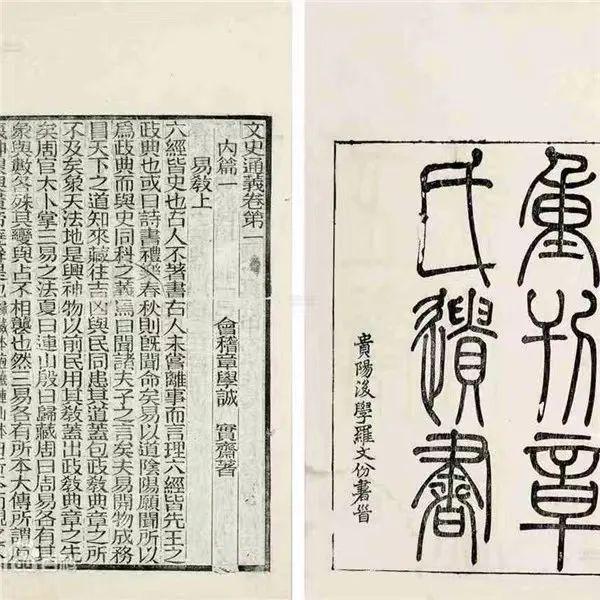 重刊章
氏遺書
貴陽後學羅文份書
文史通義卷第一
內篇一 會稽章學誠 實齋著
易教上
六經皆史也古人不著書古人未嘗離事而言理六經皆先王之
政典也或曰詩書禮樂春秋則既聞命矣易以道陰陽願聞所以
為政典而與史同科之義焉曰聞諸夫子之言矣夫易開物成務
冒天下之道知來藏往吉凶與民同患其道蓋包政教典章之所
不及矣象天法地是興神物以前民用其教蓋出政教典章之先
矣周官太卜掌三易之法夏曰連山殷曰歸藏周曰周易各有其
象與數各殊其變與占不相襲也然三易各有所本大傳所謂庖